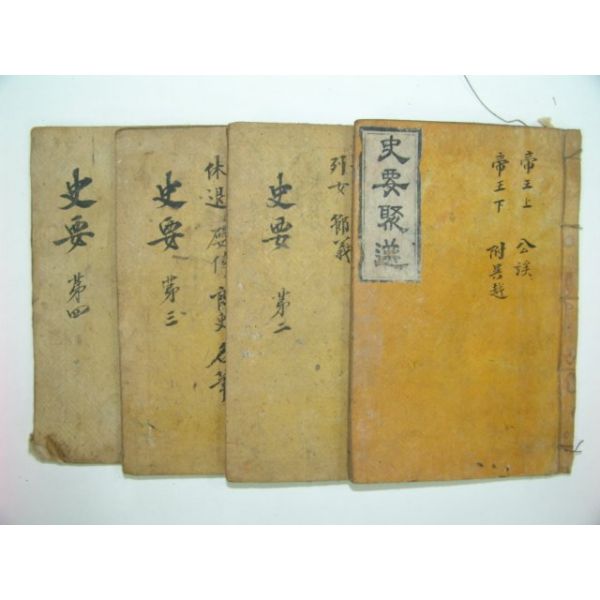 帝王上 公
帝王下 附吳越
史要聚選
列女 節義
史要 第二
休退
史要 第三
史要 第四